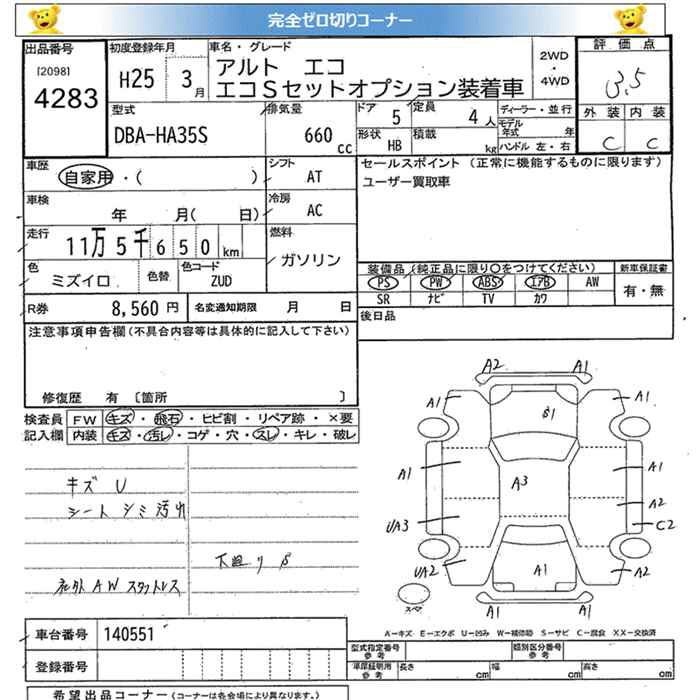 完全ゼロ切りコーナー
出品番号 初度登録年月 車名・グレード 評価点
[2098] 4283 H25 3月 アルト エコ 2WD・4WD 3.5
エコＳセットオプション装着車
外装 内装
C C
型式 排気量 ドア 定員 ディーラー・並行
DBA-HA35S 660cc 5 4人 モデル年式 年
形状 HB 積載 kg ハンドル 左・右
車歴 シフト セールスポイント (正常に機能するものに限ります)
自家用・( ) AT ユーザー買取車
車検 冷房
年 月( 日) AC
走行 燃料
11万5千650km ガソリン
色 色替 色コード 装備品 (純正品に限り〇をつけてください) 新車保証書
ミズイロ ZUD PS PW ABS ｴｱB AW 有・無
SR ﾅﾋﾞ TV カワ
R券 8,560円 名変通知期限 月 日 後日品
注意事項申告欄(不具合内容等は具体的に記入して下さい)
修復歴 有 〔箇所 〕
検査員 FW キズ・飛石・ヒビ割・リペア跡・×要
記入欄 内装 キズ・汚レ・コゲ・穴・スレ・キレ・破レ
キズ U
シート シミ汚れ
下廻り S
社外AWスタットレス
A2 A1
A1 S1 A1
A1 A3 A1
A2
UA3 C2
UA2 A1 A2
A1 A1
スペア
A－キズ E－エクボ U－凹み W－補修跡 S－サビ C－腐食 XX－交換済
車台番号 140551 型式指定番号 参考 類別区分番号 参考
登録番号 車庫証明用 参考 長さ cm 幅 cm 高さ cm
希望出品コーナー (コーナーは各会場により異なります。)